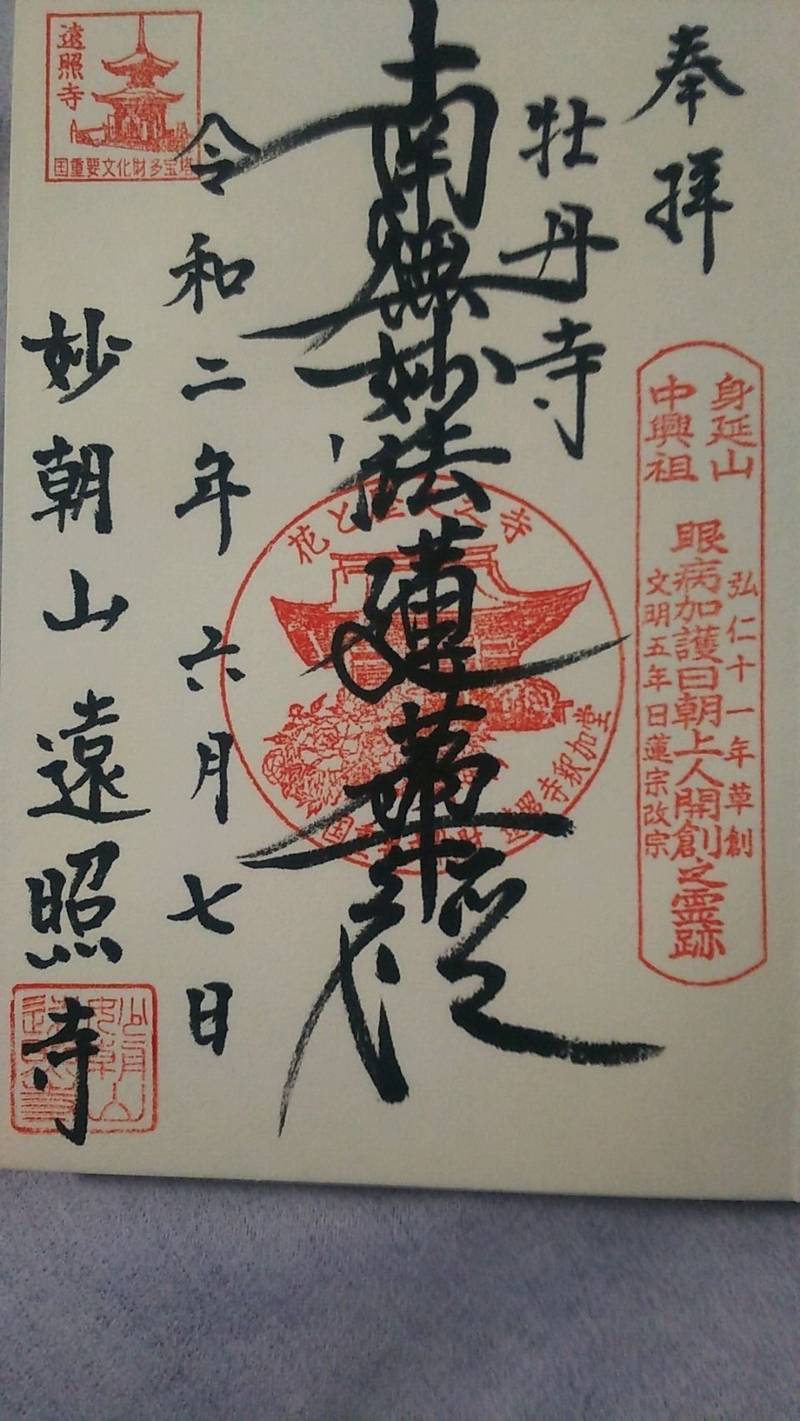 奉拝
身延山
中興祖
弘仁十一年草創
眼病加護日朝上人開創之霊跡
文明五年日蓮宗改宗
牡丹寺
南無妙法蓮華経
花と
之寺
遠照寺釈迦堂
令和二年六月七日
遠照寺
国重要文化財多宝塔
妙朝山遠照寺